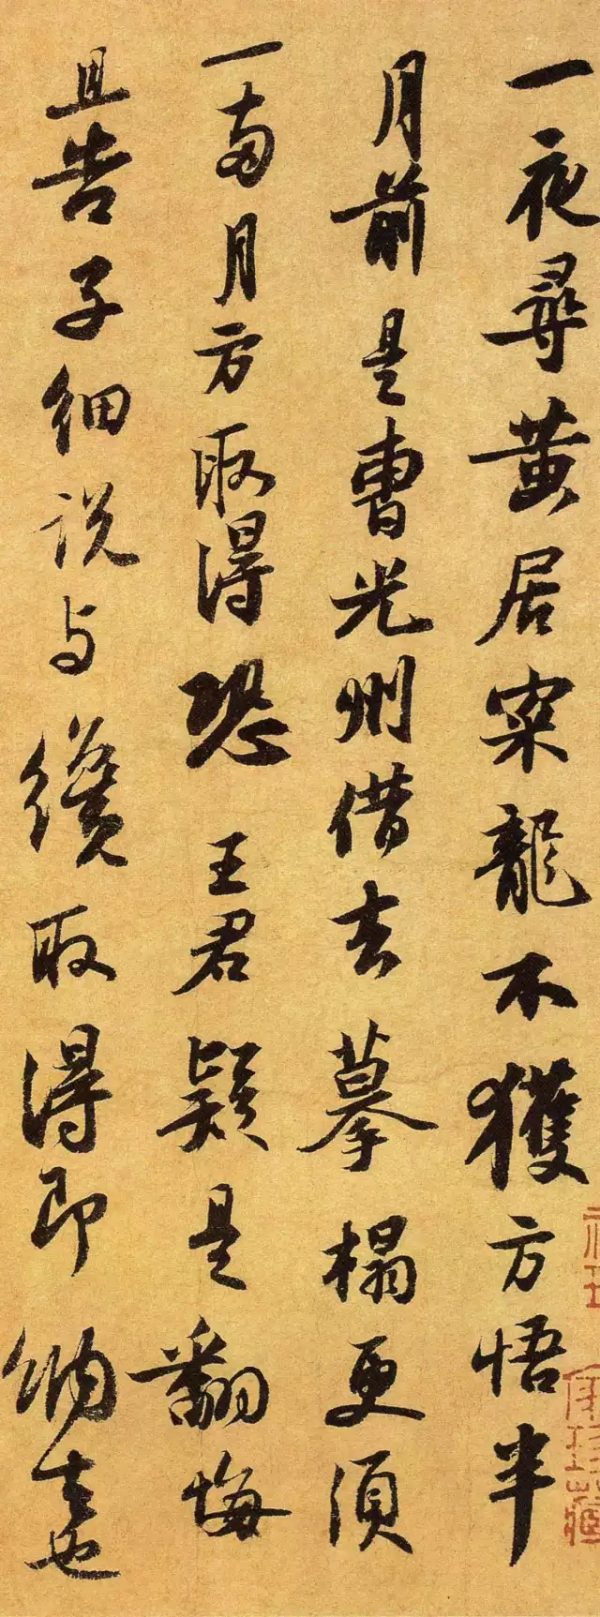 一夜尋黃居寀龍不獲方悟半
月前是曹光州借去摹榻更須
一兩月方取得恐王君疑是翻悔
且告子細說与纔取得即納去也